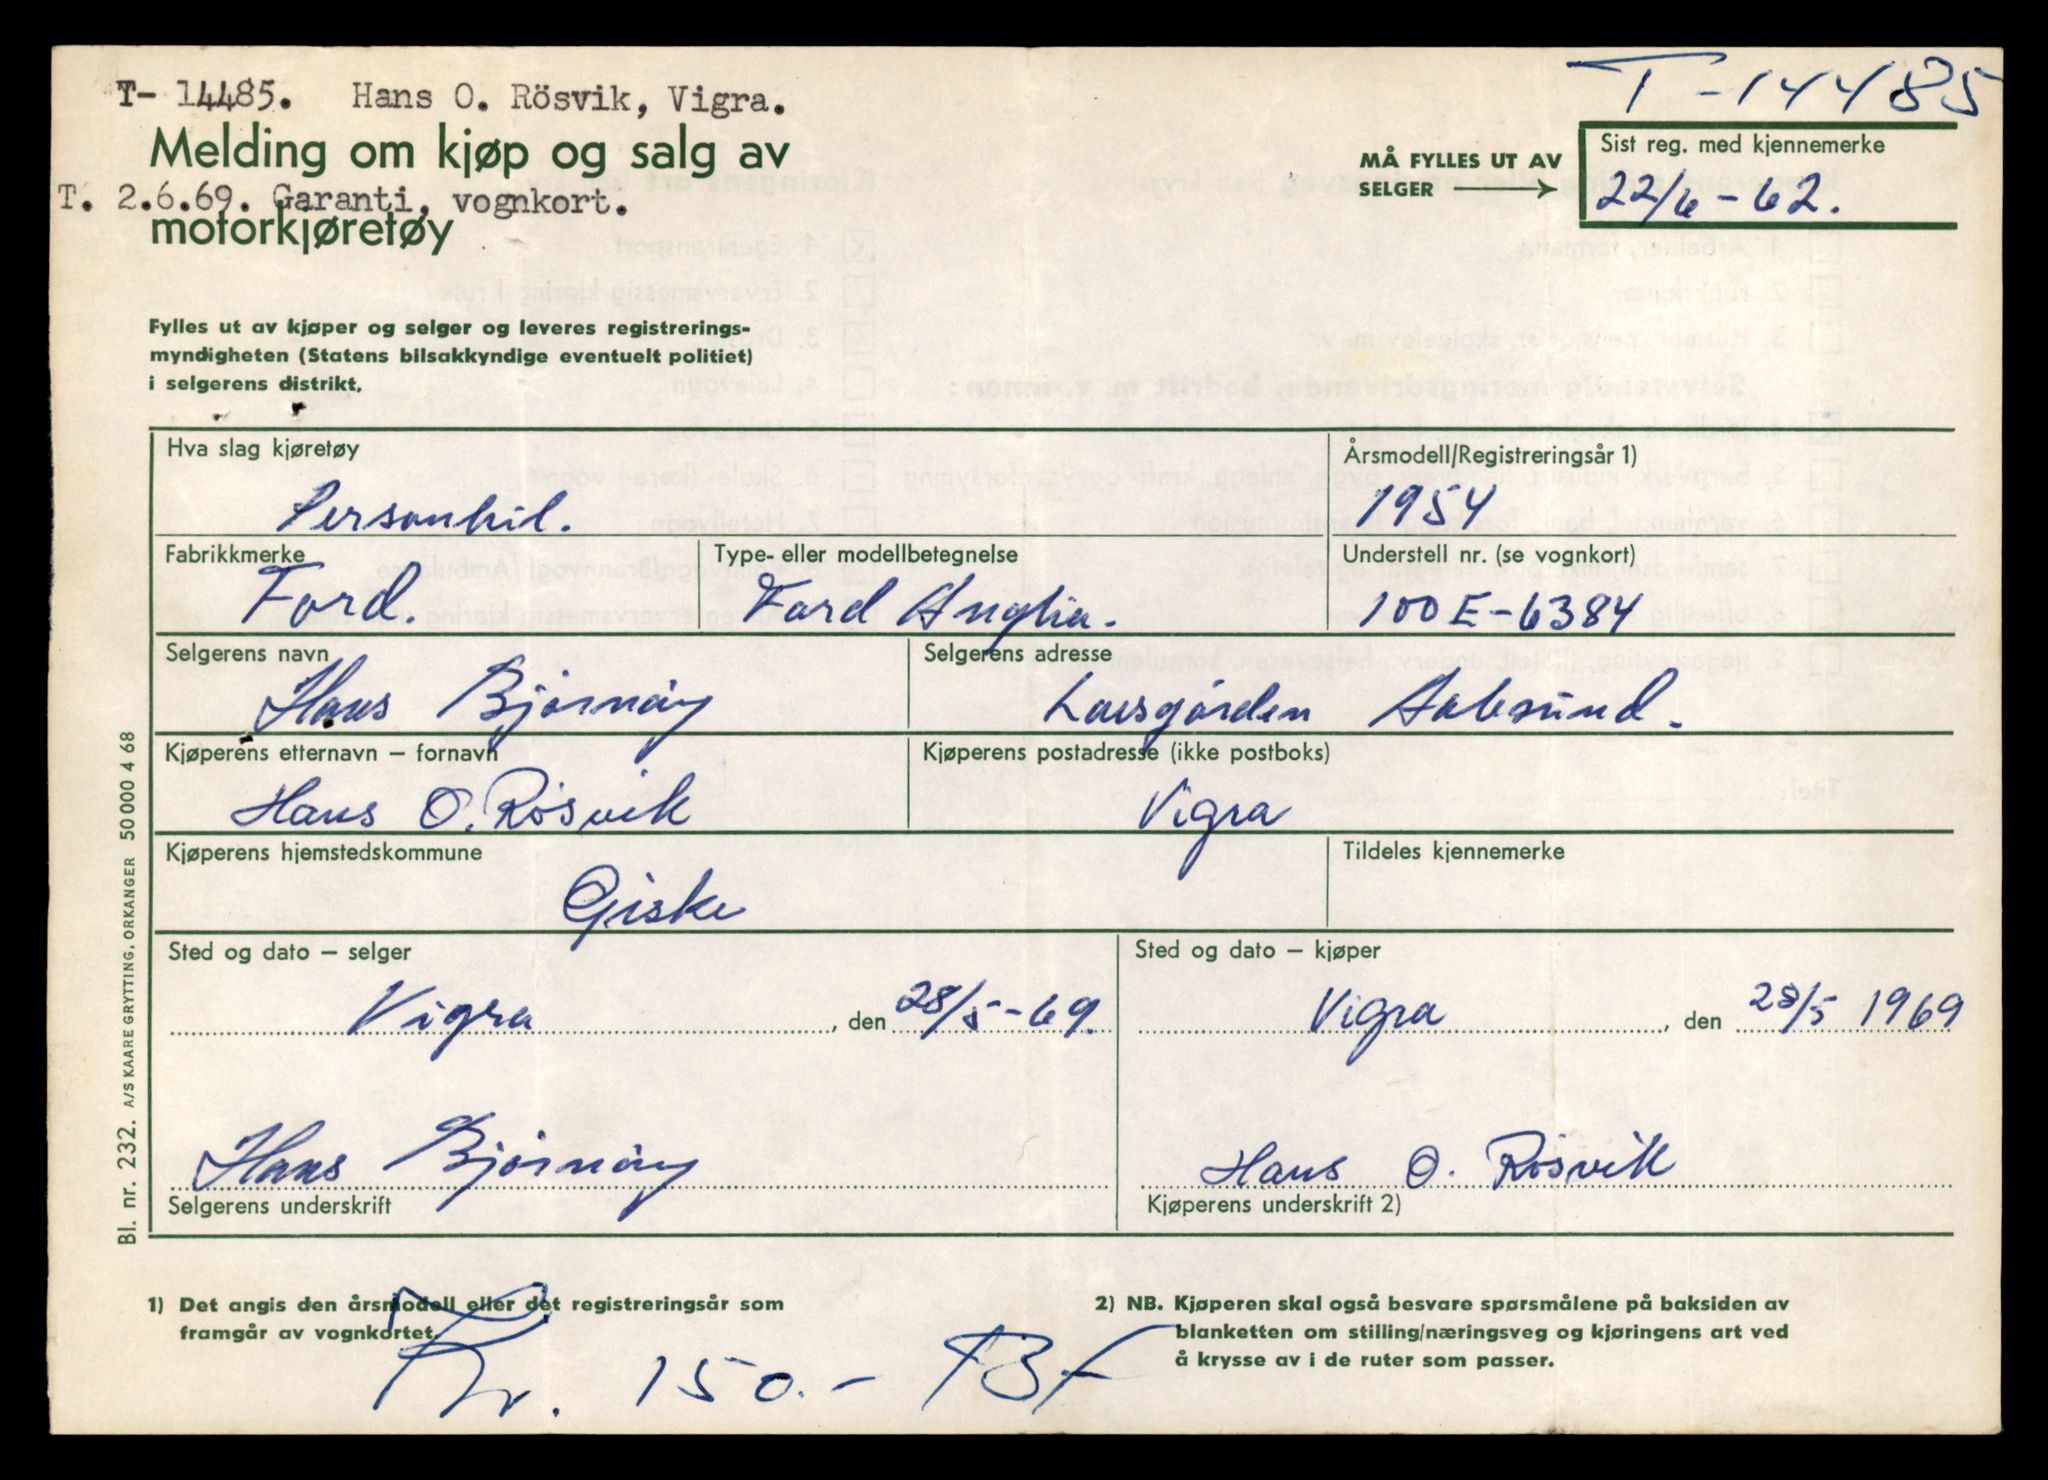 T- 14485. Hans O. Rösvik, Vigra.
T-14485
Melding om kjøp og salg av
T. 2.6.69. Garanti, vognkort.
motorkjøretøy
MÅ FYLLES UT AV
SELGER
Sist reg. med kjennemerke
22/6-62.
Fylles ut av kjøper og selger og leveres registrerings-
myndigheten (Statens bilsakkyndige eventuelt politiet)
i selgerens distrikt.
Hva slag kjøretøy
Personbil.
Årsmodell/Registreringsår 1)
1954
Fabrikkmerke
Ford.
Type- eller modellbetegnelse
Ford Anglia.
Understell nr. (se vognkort)
100E-6384
Selgerens navn
Hans Bjørnøy
Selgerens adresse
Larsgården Aalesund.
Kjøperens etternavn – fornavn
Hans O. Rösvik
Kjøperens postadresse (ikke postboks)
Vigra
Kjøperens hjemstedskommune
Giske
Tildeles kjennemerke
Sted og dato – selger
Vigra, den 28/5-69.
Sted og dato – kjøper
Vigra, den 28/5 1969
Hans Bjørnøy
Selgerens underskrift
Hans O. Rösvik
Kjøperens underskrift 2)
1) Det angis den årsmodell eller det registreringsår som
framgår av vognkortet.
2) NB. Kjøperen skal også besvare spørsmålene på baksiden av
blanketten om stilling/næringsveg og kjøringens art ved
å krysse av i de ruter som passer.
Kr. 150.-
Bl. nr. 232. A/S KAARE GRYTTING, ORKANGER 50000 4 68